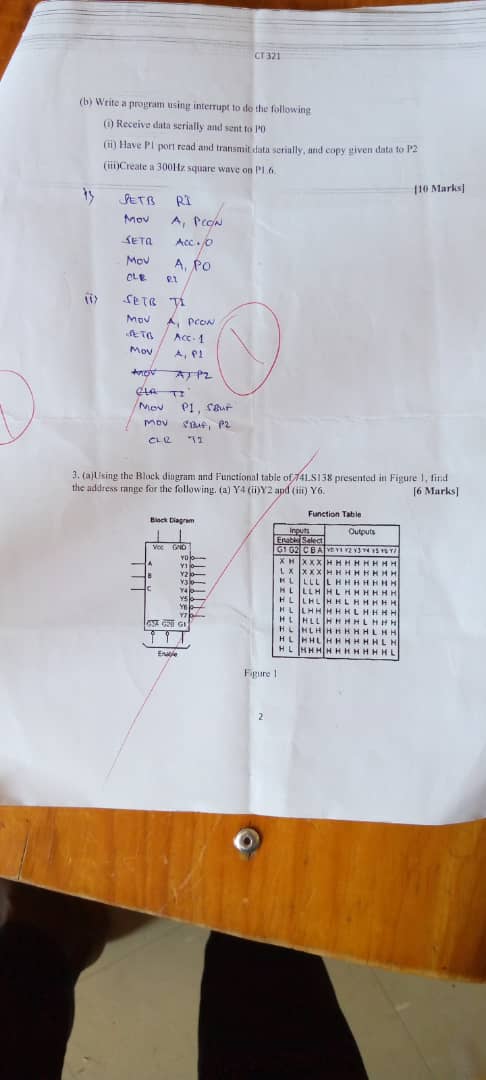 CT 321
(b) Write a program using interrupt to do the following
(i) Receive data serially and sent to P0
(ii) Have P1 port read and transmit data serially, and copy given data to P2
(iii)Create a 300Hz square wave on P1.6.
[10 Marks]
i)
SETB RI
MOV A, PCON
SETB ACC.
MOV A, P0
CLR RI
ii) SETB TI
MOV A, PCON
SETB ACC.1
MOV A, P1
MOV A, P2
CLR TI
MOV P1, SBUF
MOV SBUF, P2
CLR TI
3. (a)Using the Block diagram and Functional table of 74LS138 presented in Figure 1, find
the address range for the following. (a) Y4 (ii)Y2 and (iii) Y6.
[6 Marks]
Block Diagram
Vcc GND
A
B
C
Y0
Y1
Y2
Y3
Y4
Y5
Y6
Y7
G2A G2B G1
Enable
Function Table
Inputs Outputs
Enable Select
G1 G2 C B A Y0 Y1 Y2 Y3 Y4 Y5 Y6 Y7
X H X X X H H H H H H H H
L X X X X H H H H H H H H
H L L L L L H H H H H H H
H L L L H H L H H H H H H
H L L H L H H L H H H H H
H L L H H H H H L H H H H
H L H L L H H H H L H H H
H L H L H H H H H H L H H
H L H H L H H H H H H L H
H L H H H H H H H H H H L
Figure 1
2